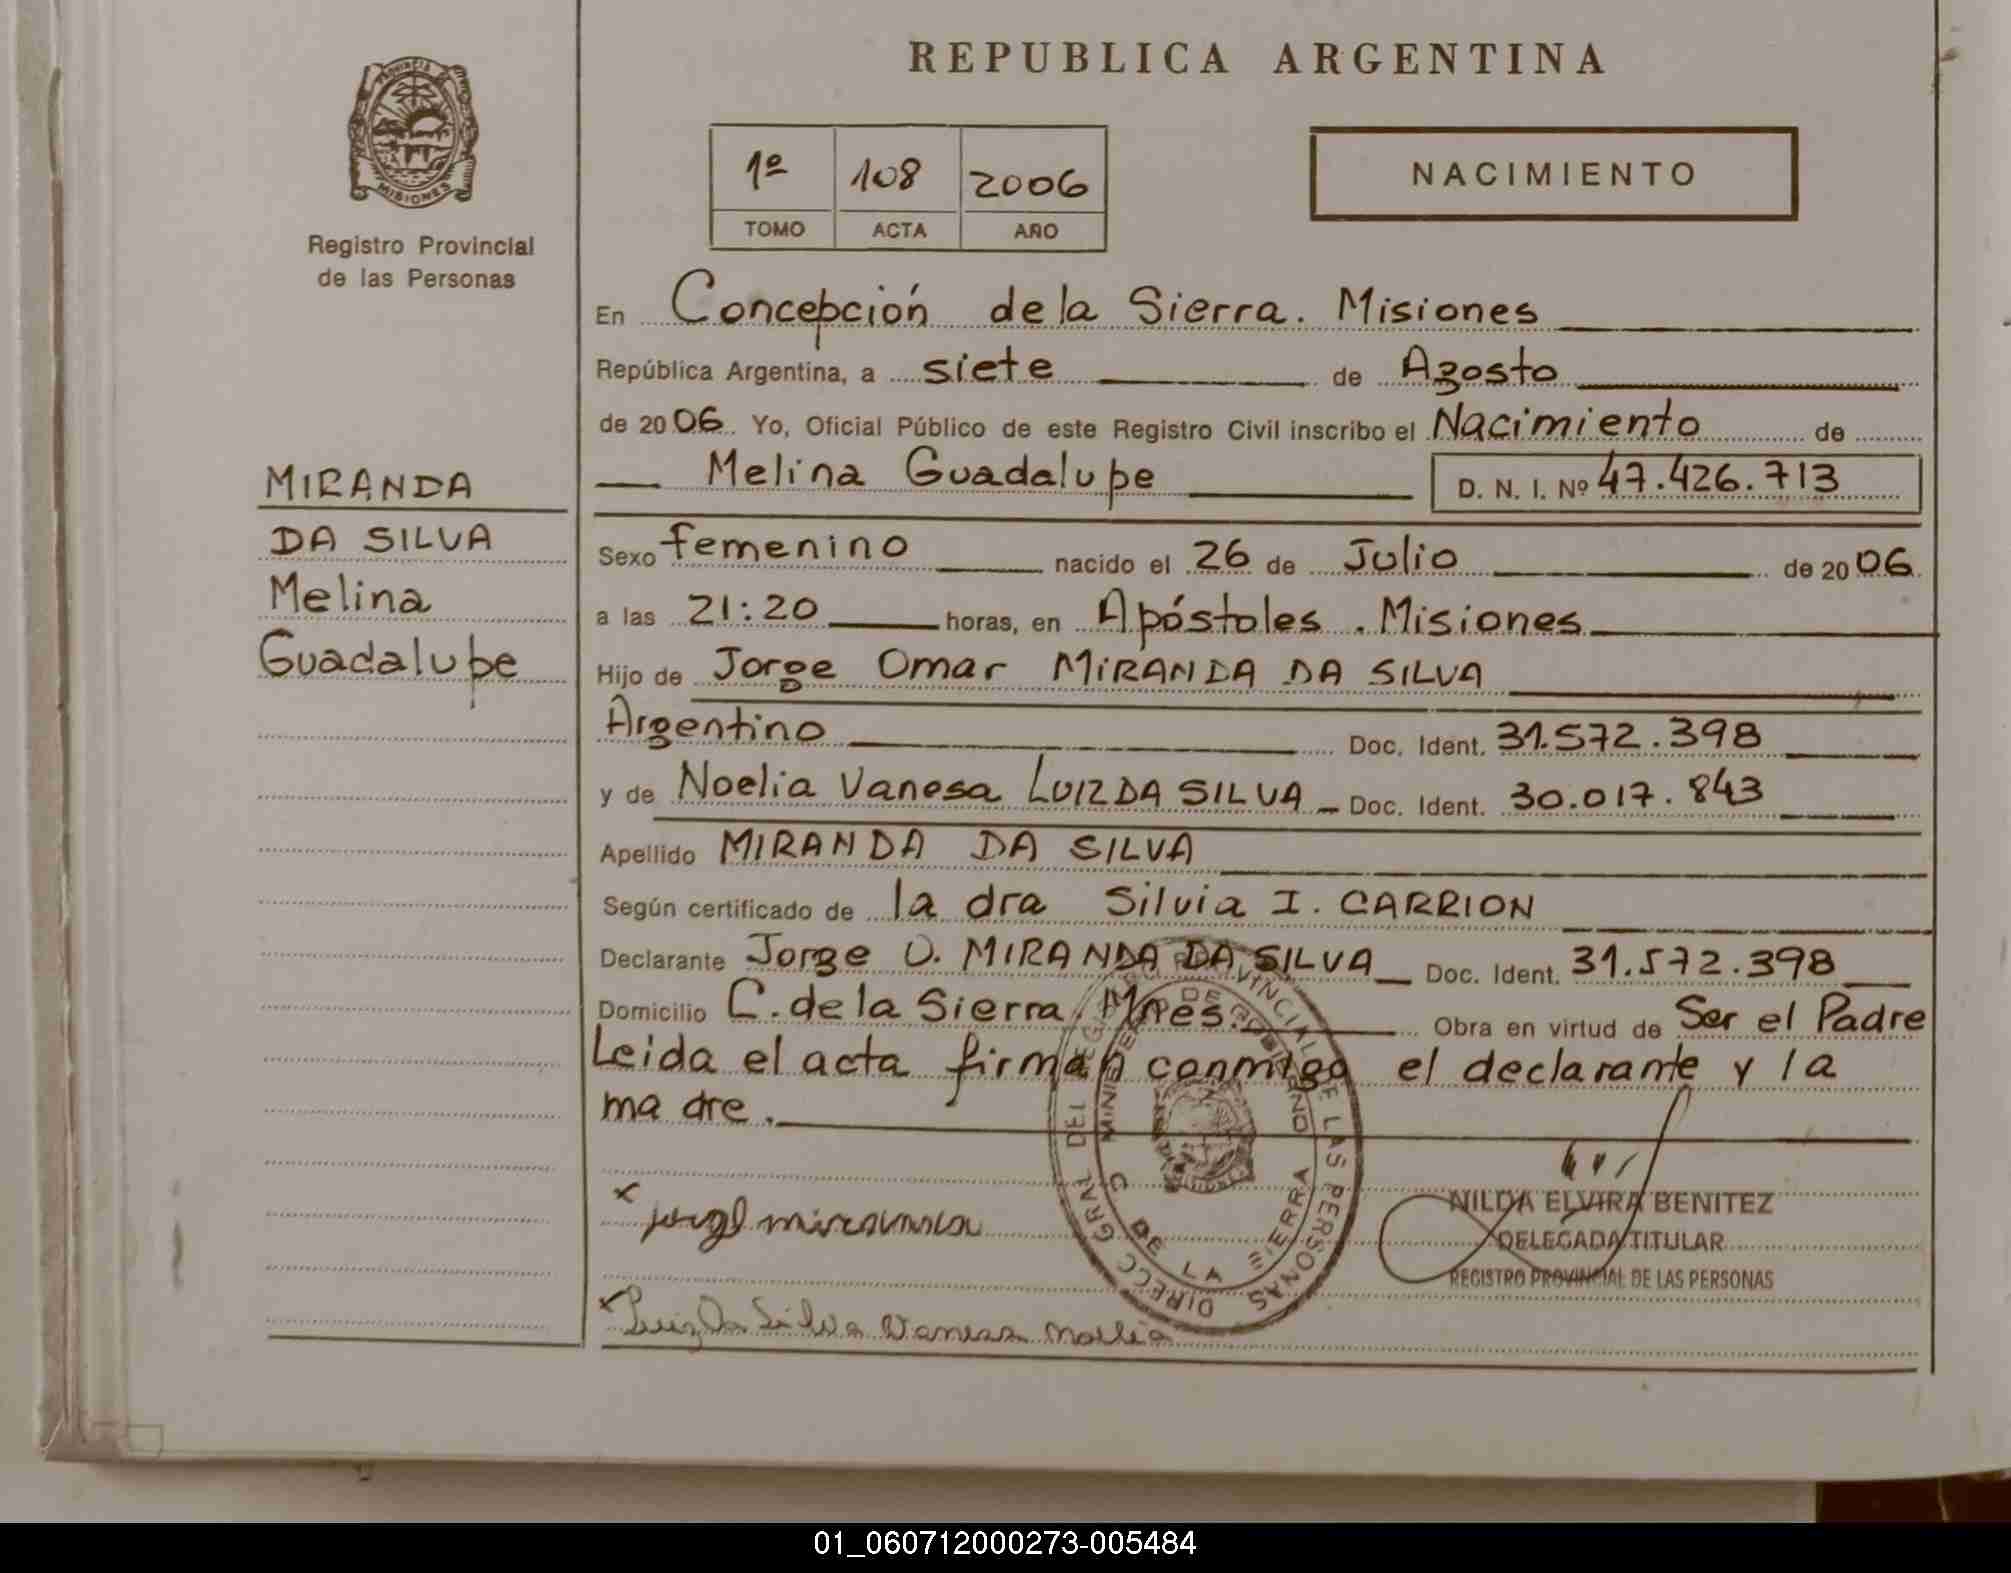 REPUBLICA ARGENTINA
PROVINCIA DE MISIONES
Registro Provincial
de las Personas
1º 108 2006
TOMO ACTA AÑO
NACIMIENTO
MIRANDA
DA SILVA
Melina
Guadalupe
En Concepción de la Sierra. Misiones
República Argentina, a siete de Agosto
de 2006. Yo, Oficial Público de este Registro Civil inscribo el Nacimiento de
Melina Guadalupe D. N. I. Nº 47.426.713
Sexo femenino nacido el 26 de Julio de 2006.
a las 21:20 horas, en Apóstoles. Misiones
Hijo de Jorge Omar MIRANDA DA SILVA
Argentino Doc. Ident. 31.572.398
y de Noelia Vanesa LUIZ DA SILVA Doc. Ident. 30.017.843
Apellido MIRANDA DA SILVA
Según certificado de la dra Silvia I. CARRION
Declarante Jorge O. MIRANDA DA SILVA Doc. Ident. 31.572.398
Domicilio C. de la Sierra. Mnes. Obra en virtud de Ser el Padre
Leida el acta firman conmigo el declarante y la
madre.
x jorge miranda
x Luiz Da Silva Vanesa Noelia
DIRECC GRAL DEL REGISTRO PROVINCIAL DE LAS PERSONAS
MINISTERIO DE GOBIERNO
C DE LA SIERRA
NILDA ELVIRA BENITEZ
DELEGADA TITULAR
REGISTRO PROVINCIAL DE LAS PERSONAS
01_060712000273-005484